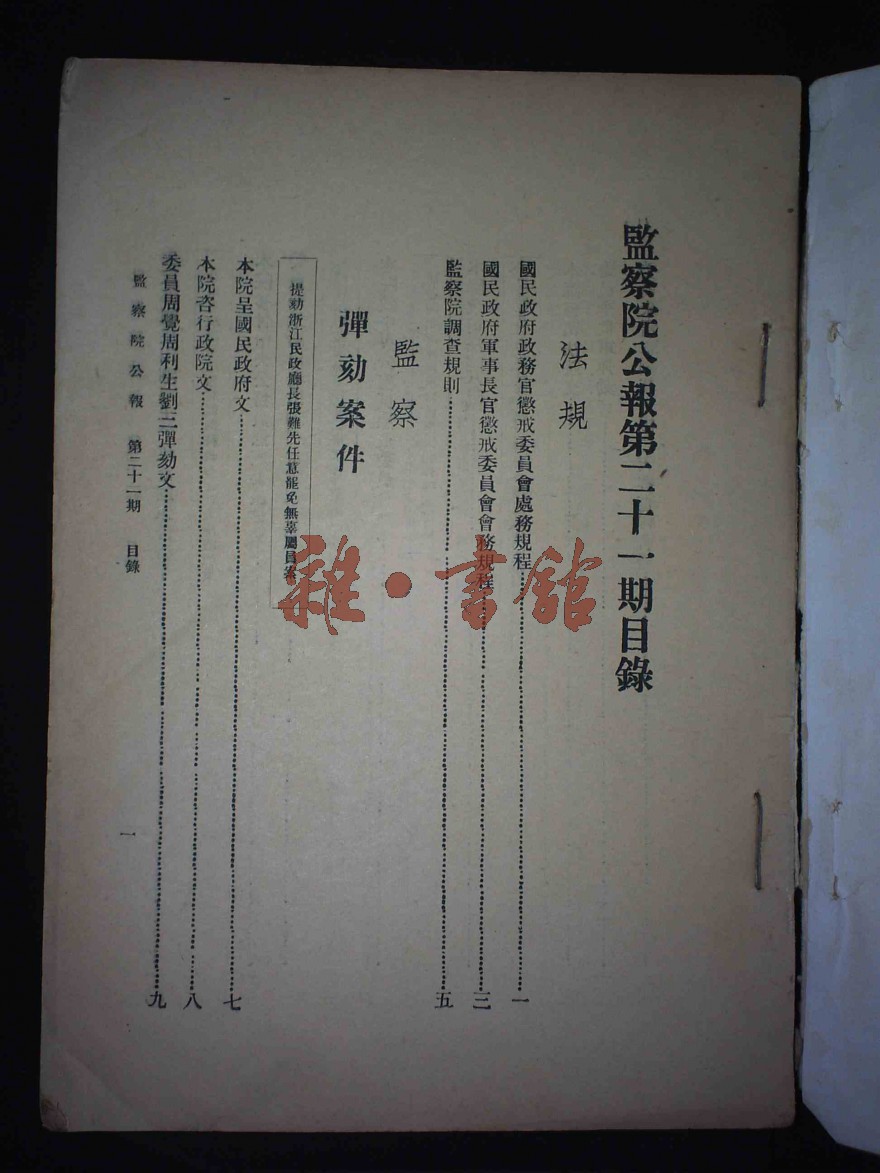 監察院公報第二十一期目錄
法規
國民政府政務官懲戒委員會處務規程 一
國民政府軍事長官懲戒委員會會務規程 三
監察院調查規則 五
監察
彈劾案件
提劾浙江民政廳長張難先任意罷免無辜屬員案
本院呈國民政府文 七
本院咨行政院文 八
委員周覺周利生劉三彈劾文 九
監察院公報 第二十一期 目錄
一
雜·書館